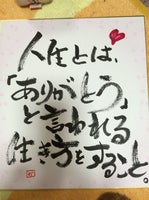 人生とは、
「ありがとう」
と言われる
生き方をすること。